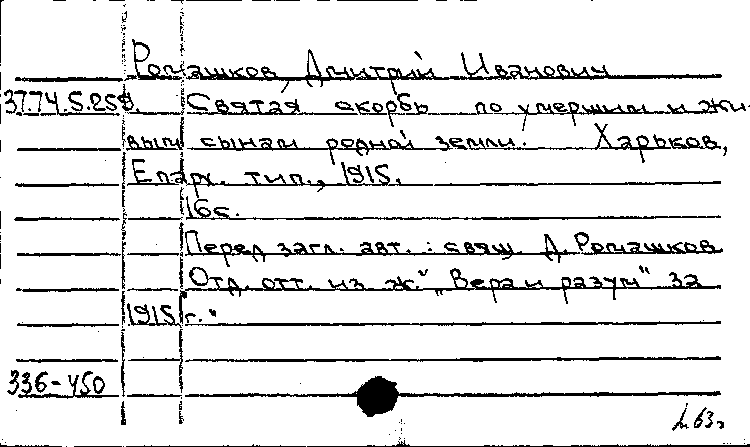 Ромашков, Дмитрий Иванович
37.74.5.258. Святая скорбь по умершим и жи-
вым сынам родной земли. Харьков,
Епарх. тип., 1915.
16с.
Перед загл. авт.: свящ. Д. Ромашков
Отд. отт. из ж. "Вера и разум" за
1915 г.
336-450